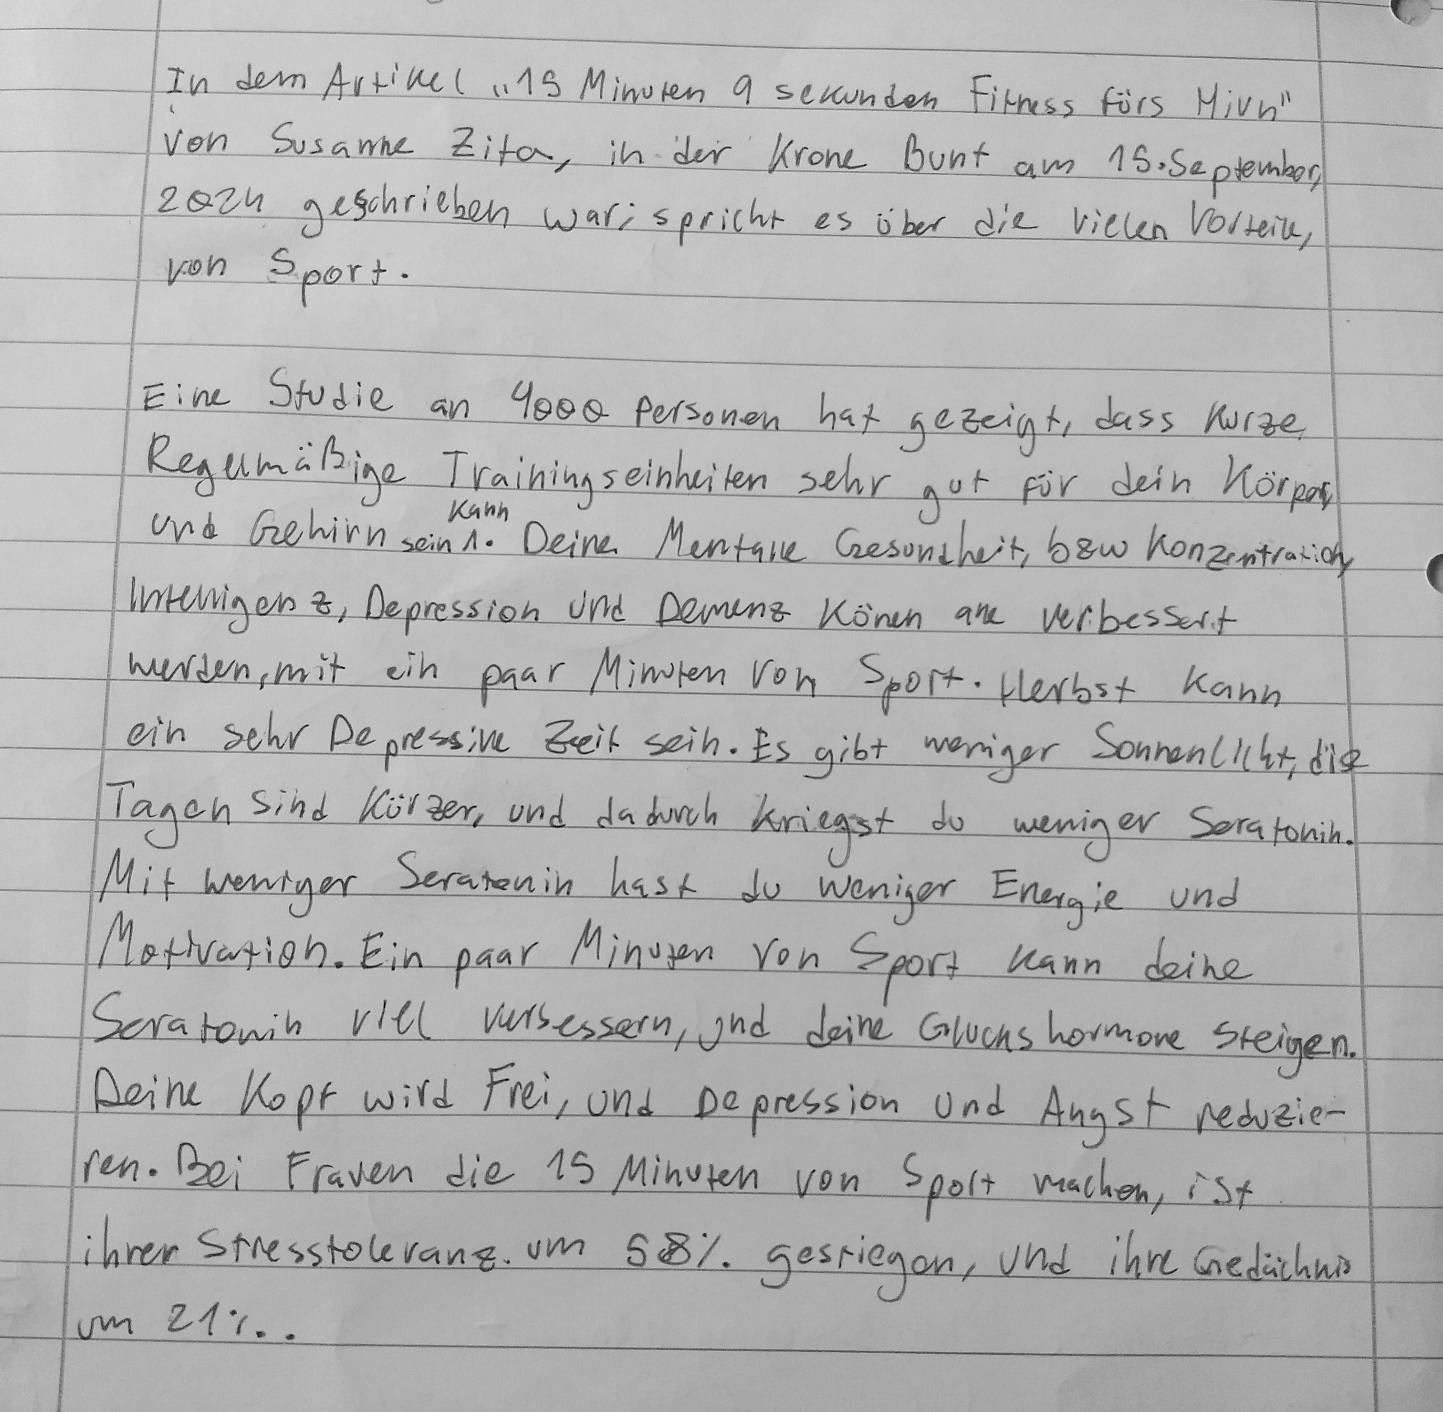 In dem Artikel „15 Minuten 9 sekunden Fitness fürs Hirn"
von Susanne Zita, in der Krone Bunt am 15. September,
2024 geschrieben war, spricht es über die vielen Vorteile,
von Sport.
Eine Studie an 4000 Personen hat gezeigt, dass kurze,
Regelmäßige Trainingseinheiten sehr gut für dein Körper,
kann
und Gehirn sein 1. Deine Mentale Gesundheit, bzw Konzentration,
Intelligenz, Depression und Demenz Könen alle verbessert
werden, mit ein paar Minuten von Sport. Herbst kann
ein sehr Depressive Zeit sein. Es gibt weniger Sonnenlicht, die
Tagen sind Kürzer, und dadurch kriegst du weniger Seratonin.
Mit weniger Seratonin hast du weniger Energie und
Motivation. Ein paar Minuten von Sport kann deine
Seratonin viel verbessern, und deine Gluckshormone steigen.
Deine Kopf wird Frei, und Depression und Angst reduzie-
ren. Bei Frauen die 15 Minuten von Sport machen, ist
ihrer Stresstoleranz um 58%. gestiegen, und ihre Gedächnis
um 21%..